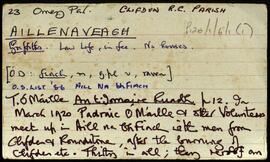 23 Omey Pal. CLIFDEN R.C. PARISH
AILLENAVEAGH
Griffiths Law Life, in fee. No houses.
[O.D: fiach, m, gpl v, raven]
O.S. LIST '86 AILL NA BHFIACH
T. Ó Máille An tIomaire Ruadh p12. In
March 1920 Padraic Ó Máille & other Volunteers
meet up in Aill na bhFiach with men from
Clifden & Roundstone, after the burning of
Clifden etc. Thirty in all; they